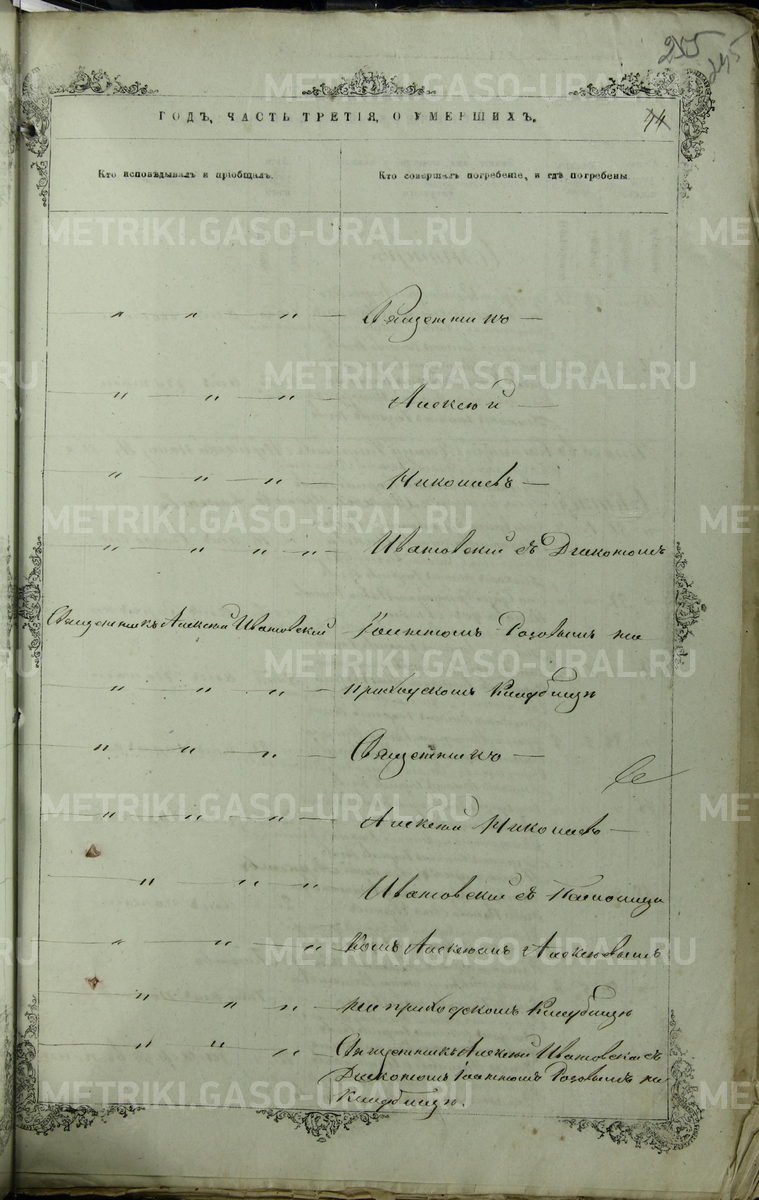 205
245
ГОДЪ, ЧАСТЬ ТРЕТІЯ, О УМЕРШИХЪ.
44
Кто исповѣдывалъ и пріобщалъ.
Кто совершалъ погребеніе, и гдѣ погребены.
" " " — Священникъ —
" " " — Алексѣй —
" " " — Николаевъ —
" " " " — Ивановскій съ Діакономъ
Священникъ Алексѣй Ивановскій
Розовымъ на
" " " — приходскомъ кладбищѣ
" " " — Священникъ —
" " " — Алексѣй Николаевъ —
" " " Ивановскій съ Псаломщи
" " " комъ Алексѣемъ Алексѣевымъ
" " " на приходскомъ кладбищѣ
" " " Священникъ Алексѣй Ивановскій съ
Діакономъ Розовымъ на
Кладбищѣ.
METRIKI.GASO-URAL.RU